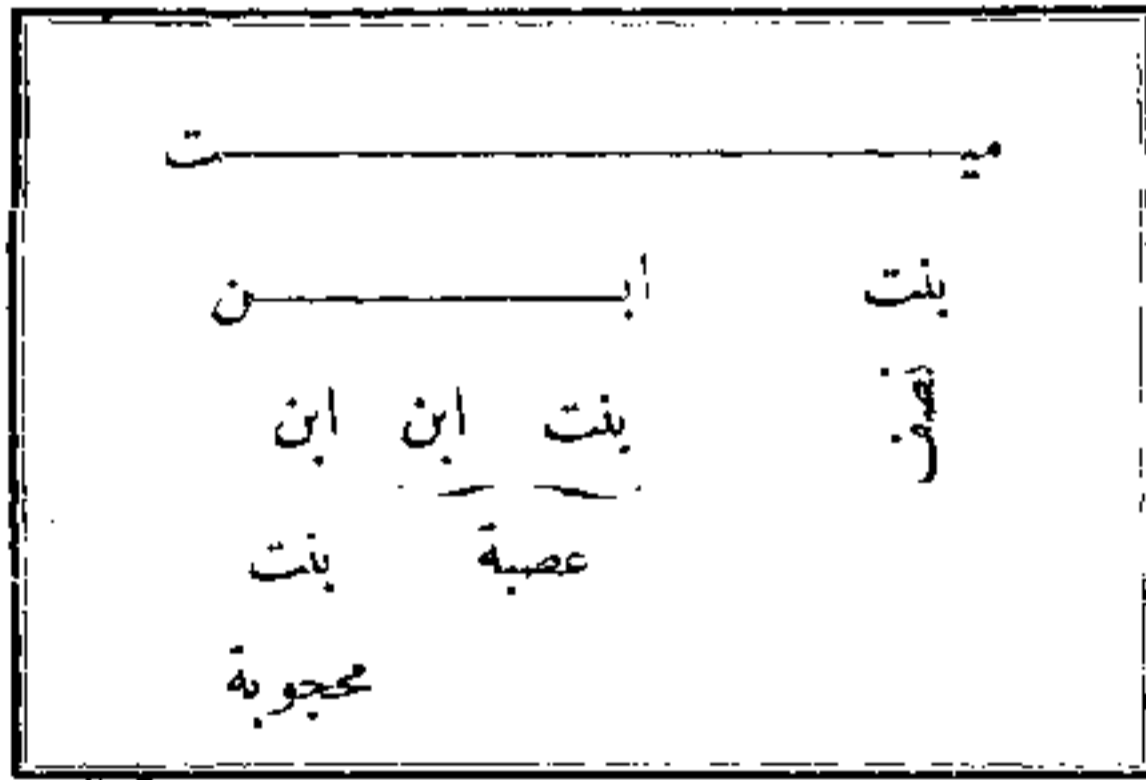 ميت
بنت ابن
نصف بنت ابن ابن
عصبة بنت
محجوبة